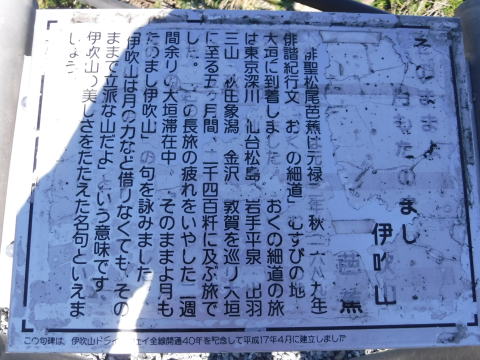 そのまま
月もたのまし
伊吹山
芭蕉
俳聖松尾芭蕉は元禄二年秋(一六八九年)
俳諧紀行文「おくの細道」むすびの地・
大垣に到着しました。おくの細道の旅
は東京深川 仙台松島 岩手平泉 出羽
三山 秋田象潟 金沢 敦賀を巡り大垣
に至る五ヶ月間、二千四百粁に及ぶ旅で
した。この長旅の疲れをいやした二週
間余りの大垣滞在中「そのままよ月も
たのまし伊吹山」の句を詠みました。
「伊吹山は月の力など借りなくても、その
ままで立派な山だよ」という意味です。
伊吹山の美しさをたたえた名句といえま
しょう。
この句碑は、伊吹山ドライブウェイ全線開通40年を記念して平成17年4月に建立しました